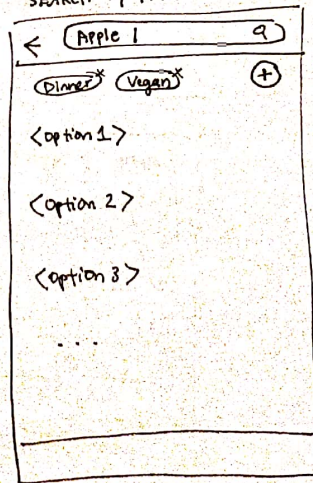 SEARCH
Apple
Dinner x Vegan x +
<option 1>
<option 2>
<option 3>
...